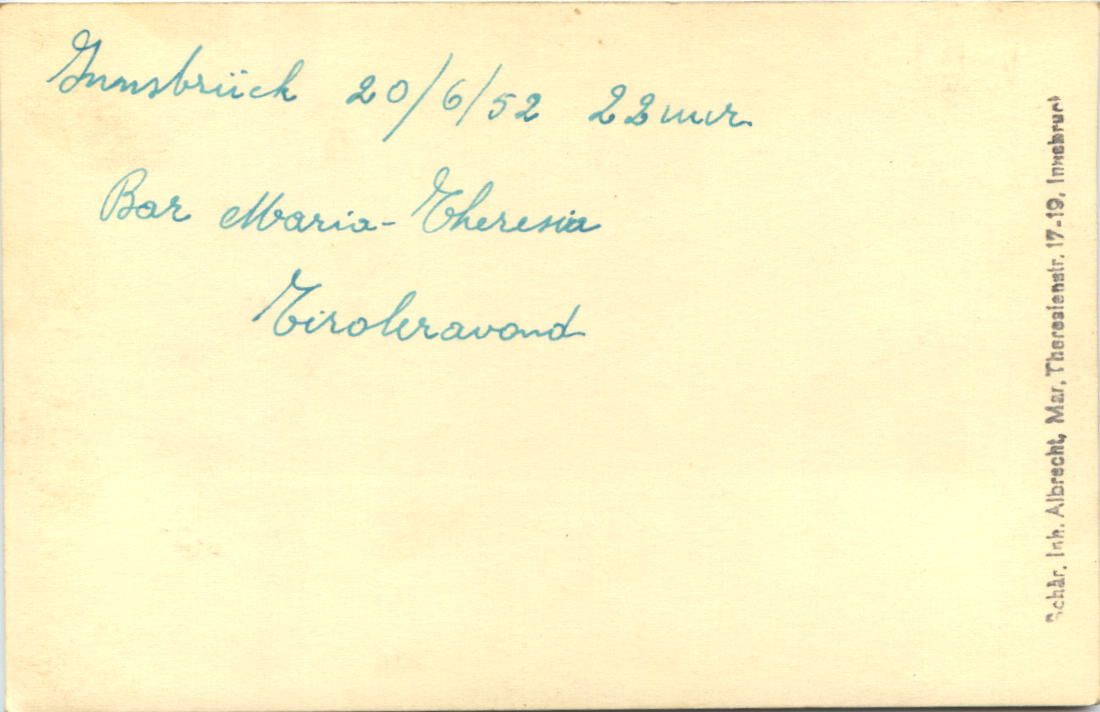 Innsbrück 20/6/52 22 uur.
Bar Maria-Theresia
Tiroleravond
Schär, Inh. Albrecht, Mar, Theresienstr. 17-19, Innsbruck